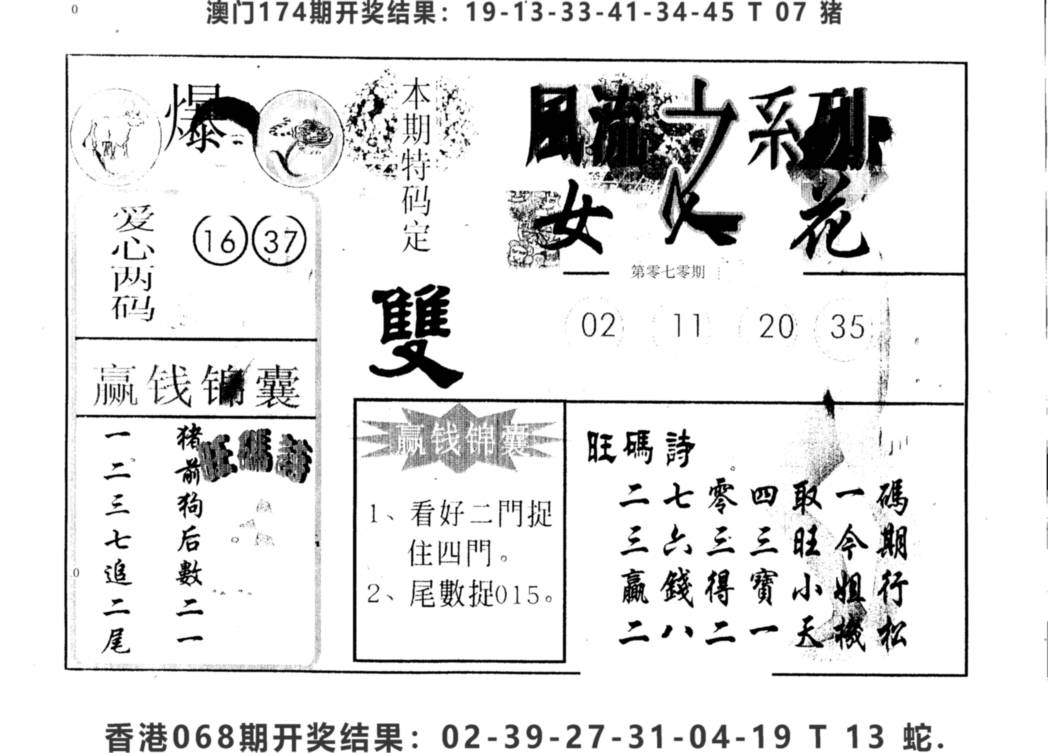 澳门174期开奖结果：19-13-33-41-34-45 T 07 猪
爆
本期特码定
雙
风流之系列
女人花
第零七零期
爱心两码
16 37
02 11 20 35
赢钱锦囊
旺碼詩
猪前狗后數二一
一二三七追二尾
赢钱锦囊
1、看好二門捉
住四門。
2、尾數捉015。
旺碼詩
二七零四取一碼
三六三三旺今期
贏錢得寶小姐行
二八二一天機松
香港068期开奖结果：02-39-27-31-04-19 T 13 蛇.